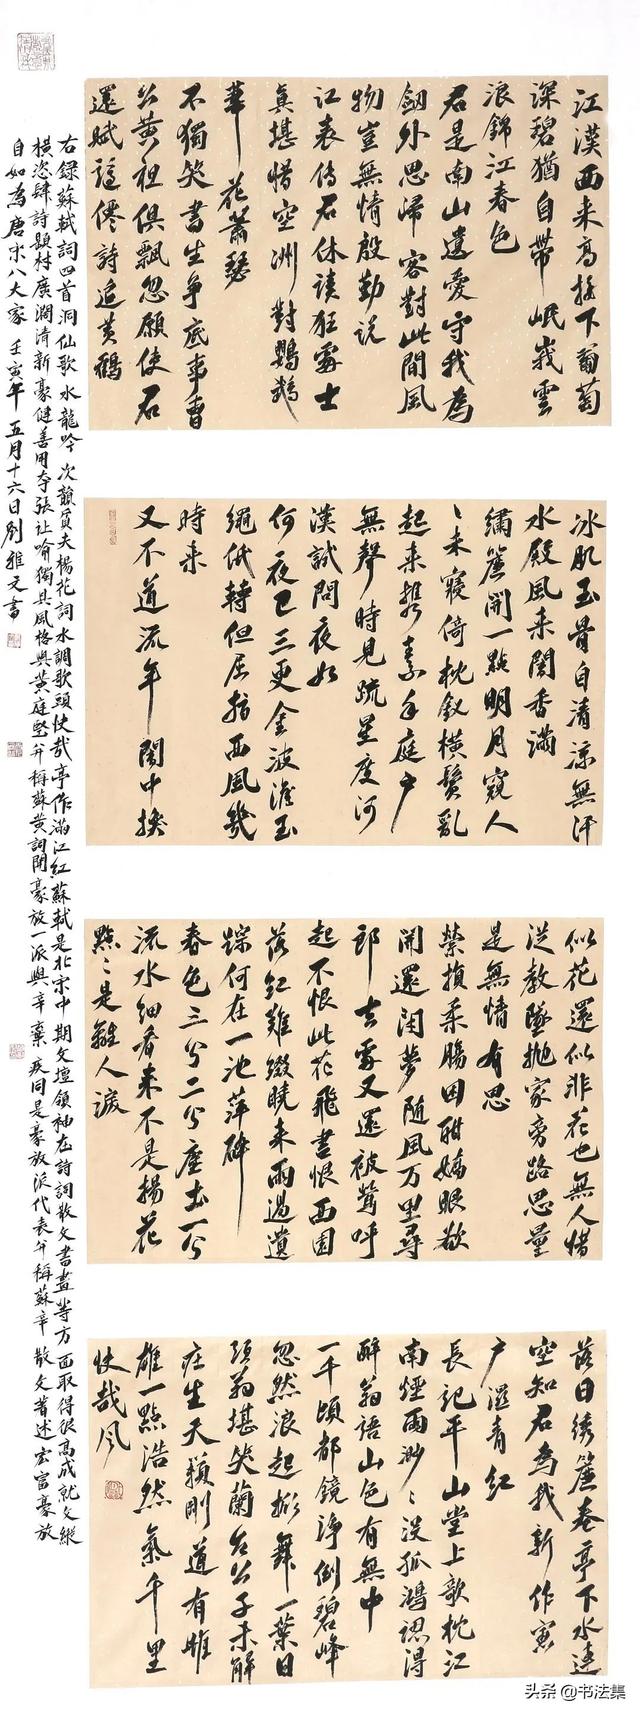 江漢西來高樓下葡萄
深碧猶自帶岷峨雲
浪錦江春色
君是南山遺愛守我為
劒外思歸客對此間風
物豈無情殷勤說
江表傳君休讀狂處士
真堪惜空洲對鸚鵡
葦花蕭瑟
不獨笑書生爭底事曹
公黃祖俱飄忽願使君
還賦謫僊詩追黃鶴
冰肌玉骨自清涼無汗
水殿風來闇香滿
繡簾開一點明月窺人
〻未寢倚枕釵橫鬢亂
起來攜素手庭戶
無聲時見疏星度河
漢試問夜如
何夜已三更金波澹玉
繩低轉但屈指西風幾
時來
又不道流年闇中換
似花還似非花也無人惜
從教墜拋家旁路思量
是無情有思
縈損柔腸困酣嬌眼欲
開還閉夢隨風万里尋
郎去處又還被鶯呼
起不恨此花飛盡恨西園
落紅難綴曉來雨過遺
踪何在一池萍碎
春色三分二分塵土一分
流水細看來不是楊花
點〻是離人淚
落日綉簾卷亭下水連
空知君為我新作窗
戶溼青紅
長記平山堂上欹枕江
南煙雨渺〻沒孤鴻認得
醉翁語山色有無中
一千頃都鏡淨倒碧峰
忽然浪起掀舞一葉白
頭翁堪笑蘭台公子未解
莊生天籟剛道有雌
雄一點浩然氣千里
快哉風
右錄蘇軾詞四首洞仙歌水龍吟次韻章質夫楊花詞水調歌頭快哉亭作滿江紅蘇軾是北宋中期文壇領袖在詩詞散文書畫等方面取得很高成就文縱
橫恣肆詩題材廣濶清新豪健善用夸張比喻獨具風格與黃庭堅並稱蘇黃詞開豪放一派與辛棄疾同是豪放派代表並稱蘇辛散文著述宏富豪放
自如為唐宋八大家壬寅年五月十六日劉雅文書
头条 @书法集